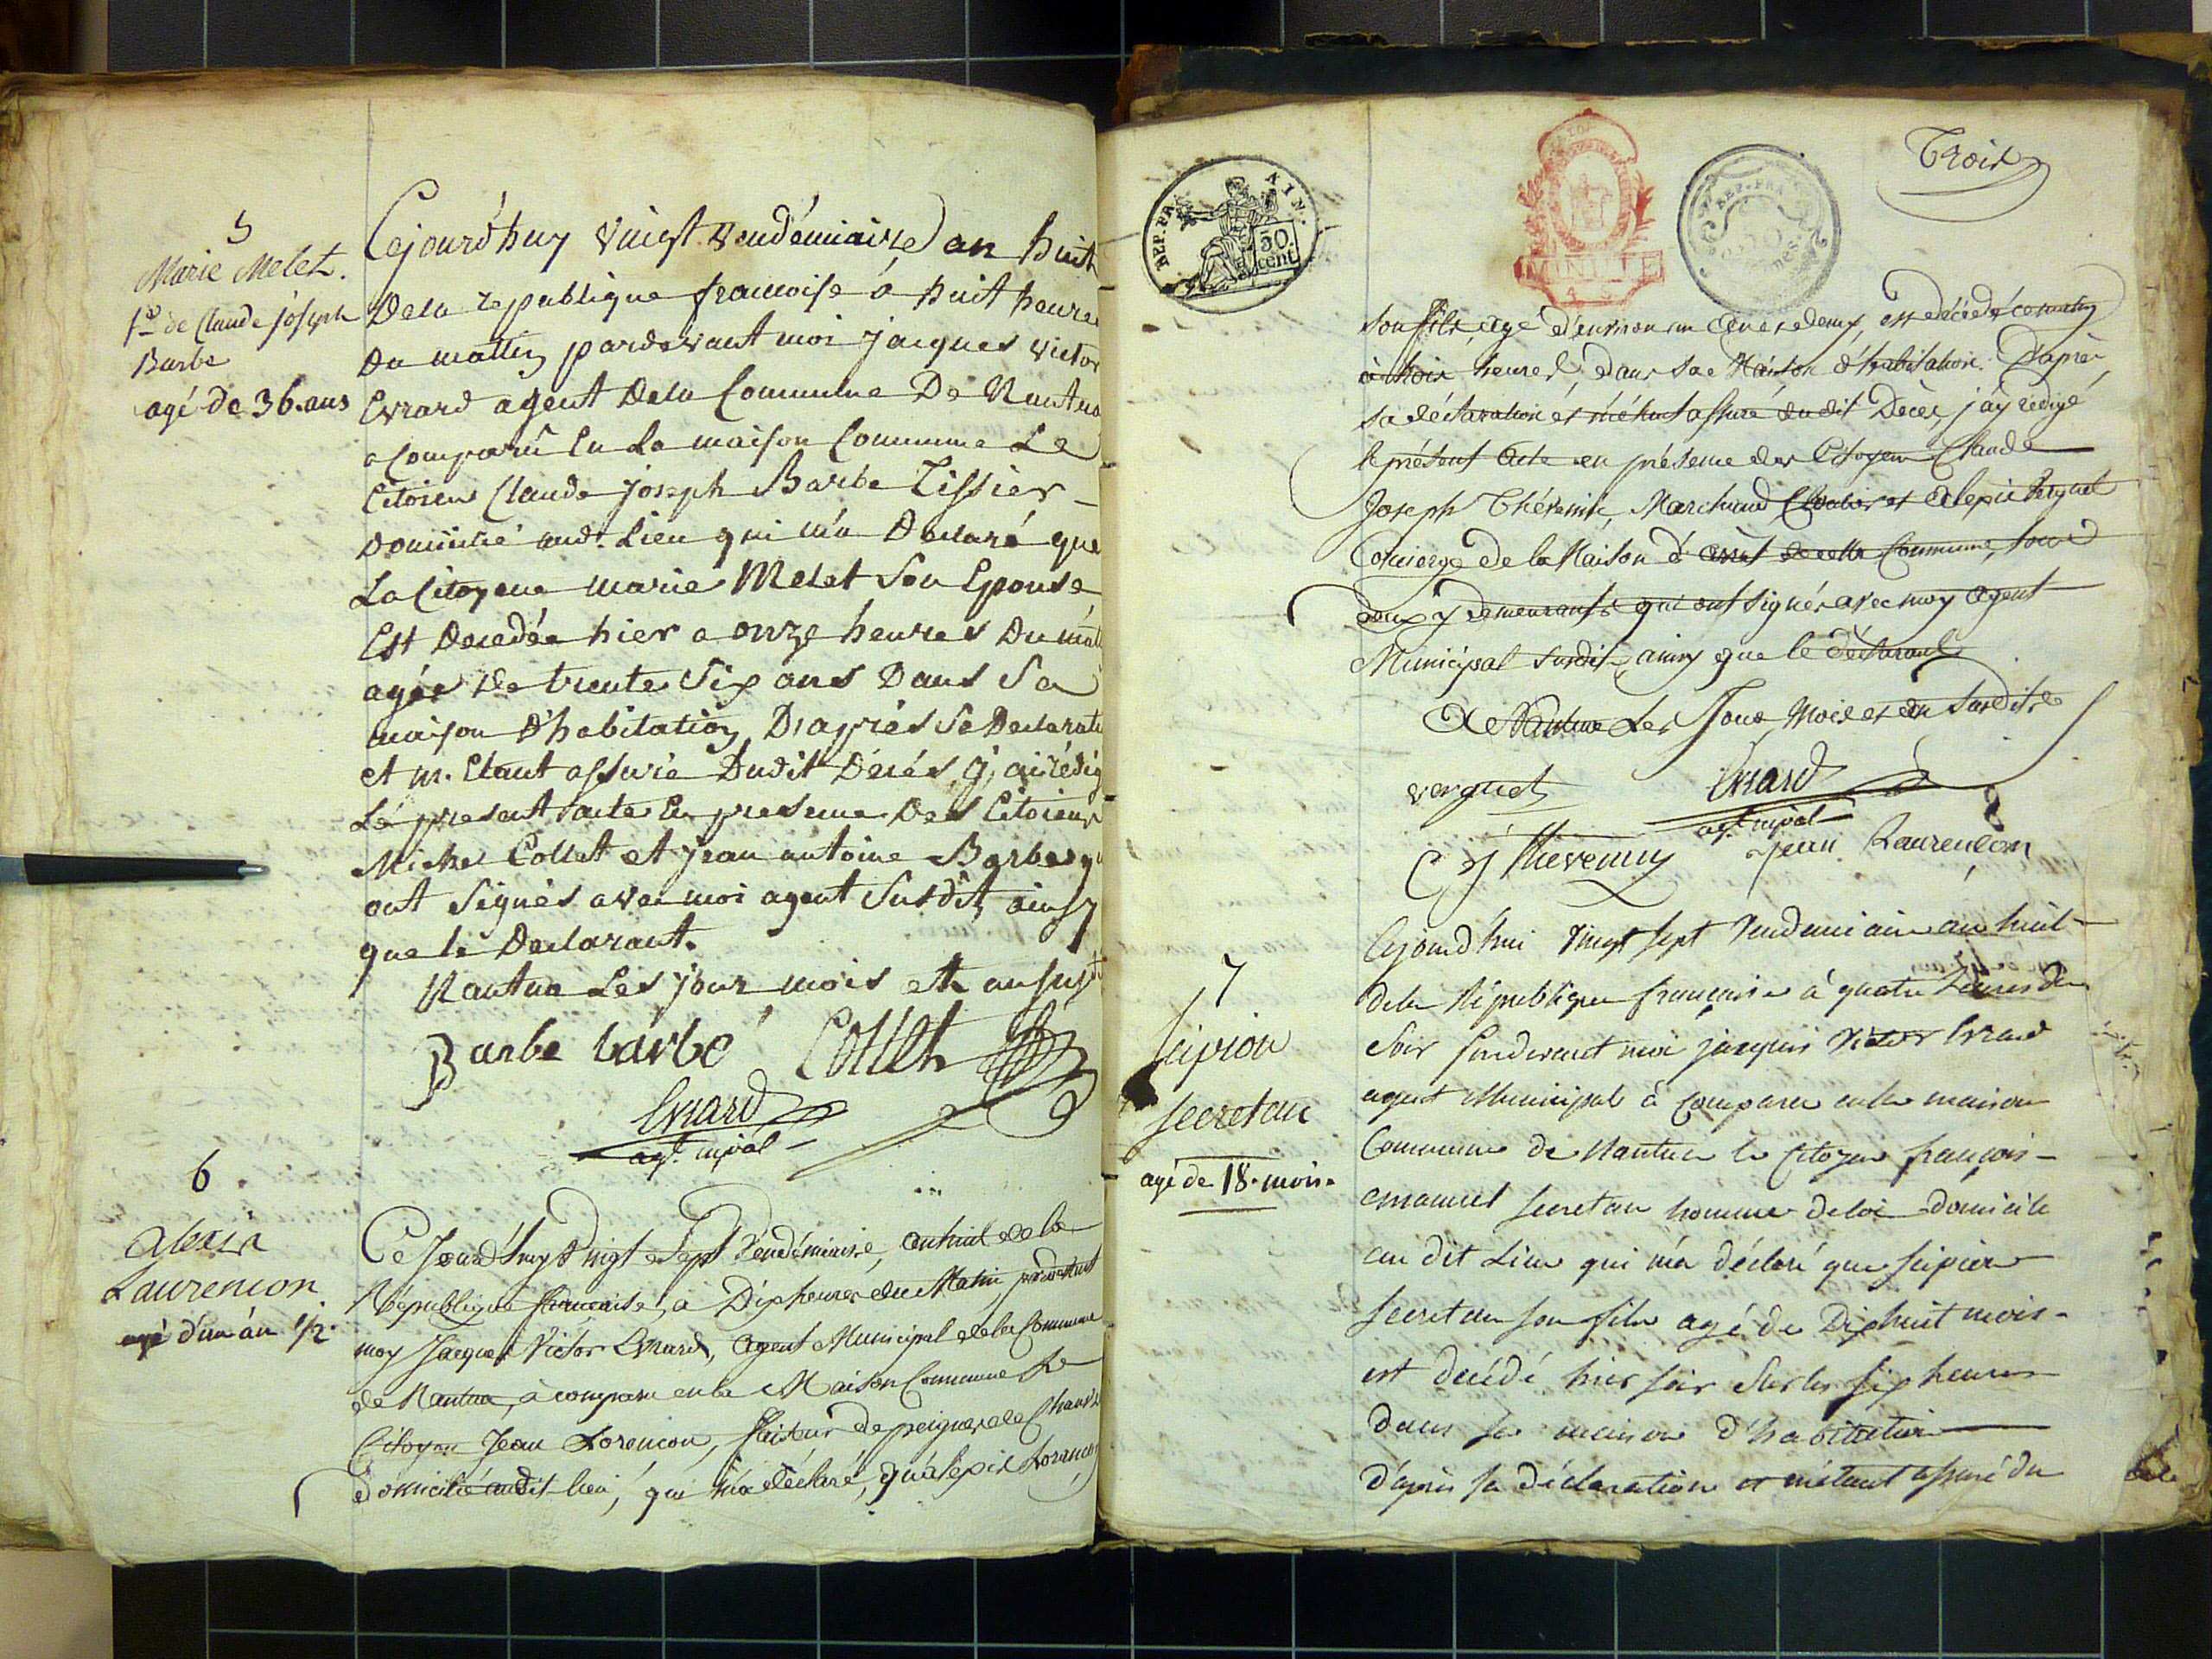 5
Marie Melet.
f.e de Claude joseph
Barbe
agé de 36. ans
Cejourd'huy vingt vendémiaire an huit
Dela republique francoise à huit heures
Du mattin pardevant moi jacques victor
Evrard agent Dela Commune De Nantua
a Comparû En La maison Commune Le
Citoien Claude joseph Barbe Tissier
Domicilié aud. Lieu qui m'a Declaré que
La Citoyene marie Melet son Epouse
Est Decedée hier a onze heures Du mat
agée De trente six ans Dans Sa
maison D'habitation, D'apprés Sa Declarati
et m. Etant assuré Dudit Décés, j'ai rédig
Lé present acte En presence Des Citoiens
Michel Collet et jean antoine Barbe qu
ont Signés avec moi agent Susdit, ainsy
que le Declarant.
Nantua Les jour, mois et an susd
Barbe barbe Collet
Evrard
agt. mpal
6
Alexis
Laurencon
agé d'un an 1/2.
Ce Jourd'huy Vingt Sept Vendémiaire, an huit de la
République française, à Dix heures du Matin, pardevant
moy Jacques Victor Evrard, Agent Municipal de la Commune
de Nantua, à comparu en la Maison Commune Le
Citoyen Jean Lorencon, faiseur de peignes de Chanvre
domicilié audit lieu, qui m'a déclaré, qu'alexis Lorencon
Trois
REP. FRA. AIN.
50. cent
MINUTE
REP. FRA.
son fils, agé d'environ un an et demy, est décédé ce matin
à trois heures, dans sa Maison d'habitation. D'après
sa déclaration et m'étant assuré du dit Décès, j'ay rédigé
le présent Acte en présence des Citoyens Claude
Joseph Thévenin, Marchand et alexis Verguet
Concierge de la Maison d'arrêt de cette Commune, tous
deux y demeurants qui ont signés avec moy Agent
Municipal susdit, ainsy que le déclarant
A Nantua Les Jour, Mois et an susdits
verguet Evrard
agt. mpal
C J Thevenin jean Laurençon
7
Scipion
Secretan
agé de 18. mois.
Cejourd'hui vingt sept Vendemiaire an huit
dela République française à quatre heures du
soir pardevant moi jacques Victor Evrard
agent Municipal à Comparu en la maison
Commune de Nantua le Citoyen françois
emanuel secretan homme de loi domicilie
au dit Lieu qui m'a déclaré que scipion
secretan son fils agé de Dix huit mois
est decédé hier soir sur les six heures
dans sa maison d'habitation
d'après sa déclaration et m'étant assuré du